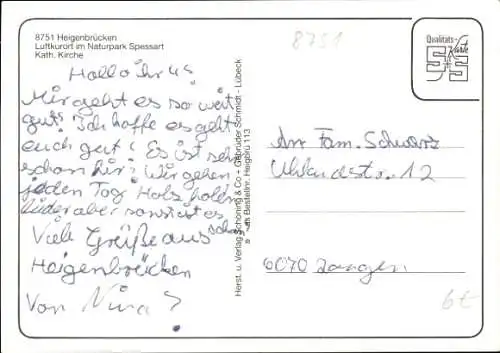 8751 Heigenbrücken
Luftkurort im Naturpark Spessart
Kath. Kirche
Hallo ihr 4!
Mir geht es so weit
gut! Ich hoffe es geht
euch gut! Es ist sehr
schön hir! Wir gehen
jeden Tag Holz holen
leider aber sonst ist es
schön
Viele Greüße aus
Heigenbrücken
Von Nina?
Herst. u. Verlag Schöning & Co + Gebrüder Schmidt - Lübeck
Bestellnr. Heigbrü 113
8751
Qualitäts-
Karte
S+S
An Fam. Schwarz
Uhlandstr. 12
6070 Langen
6€